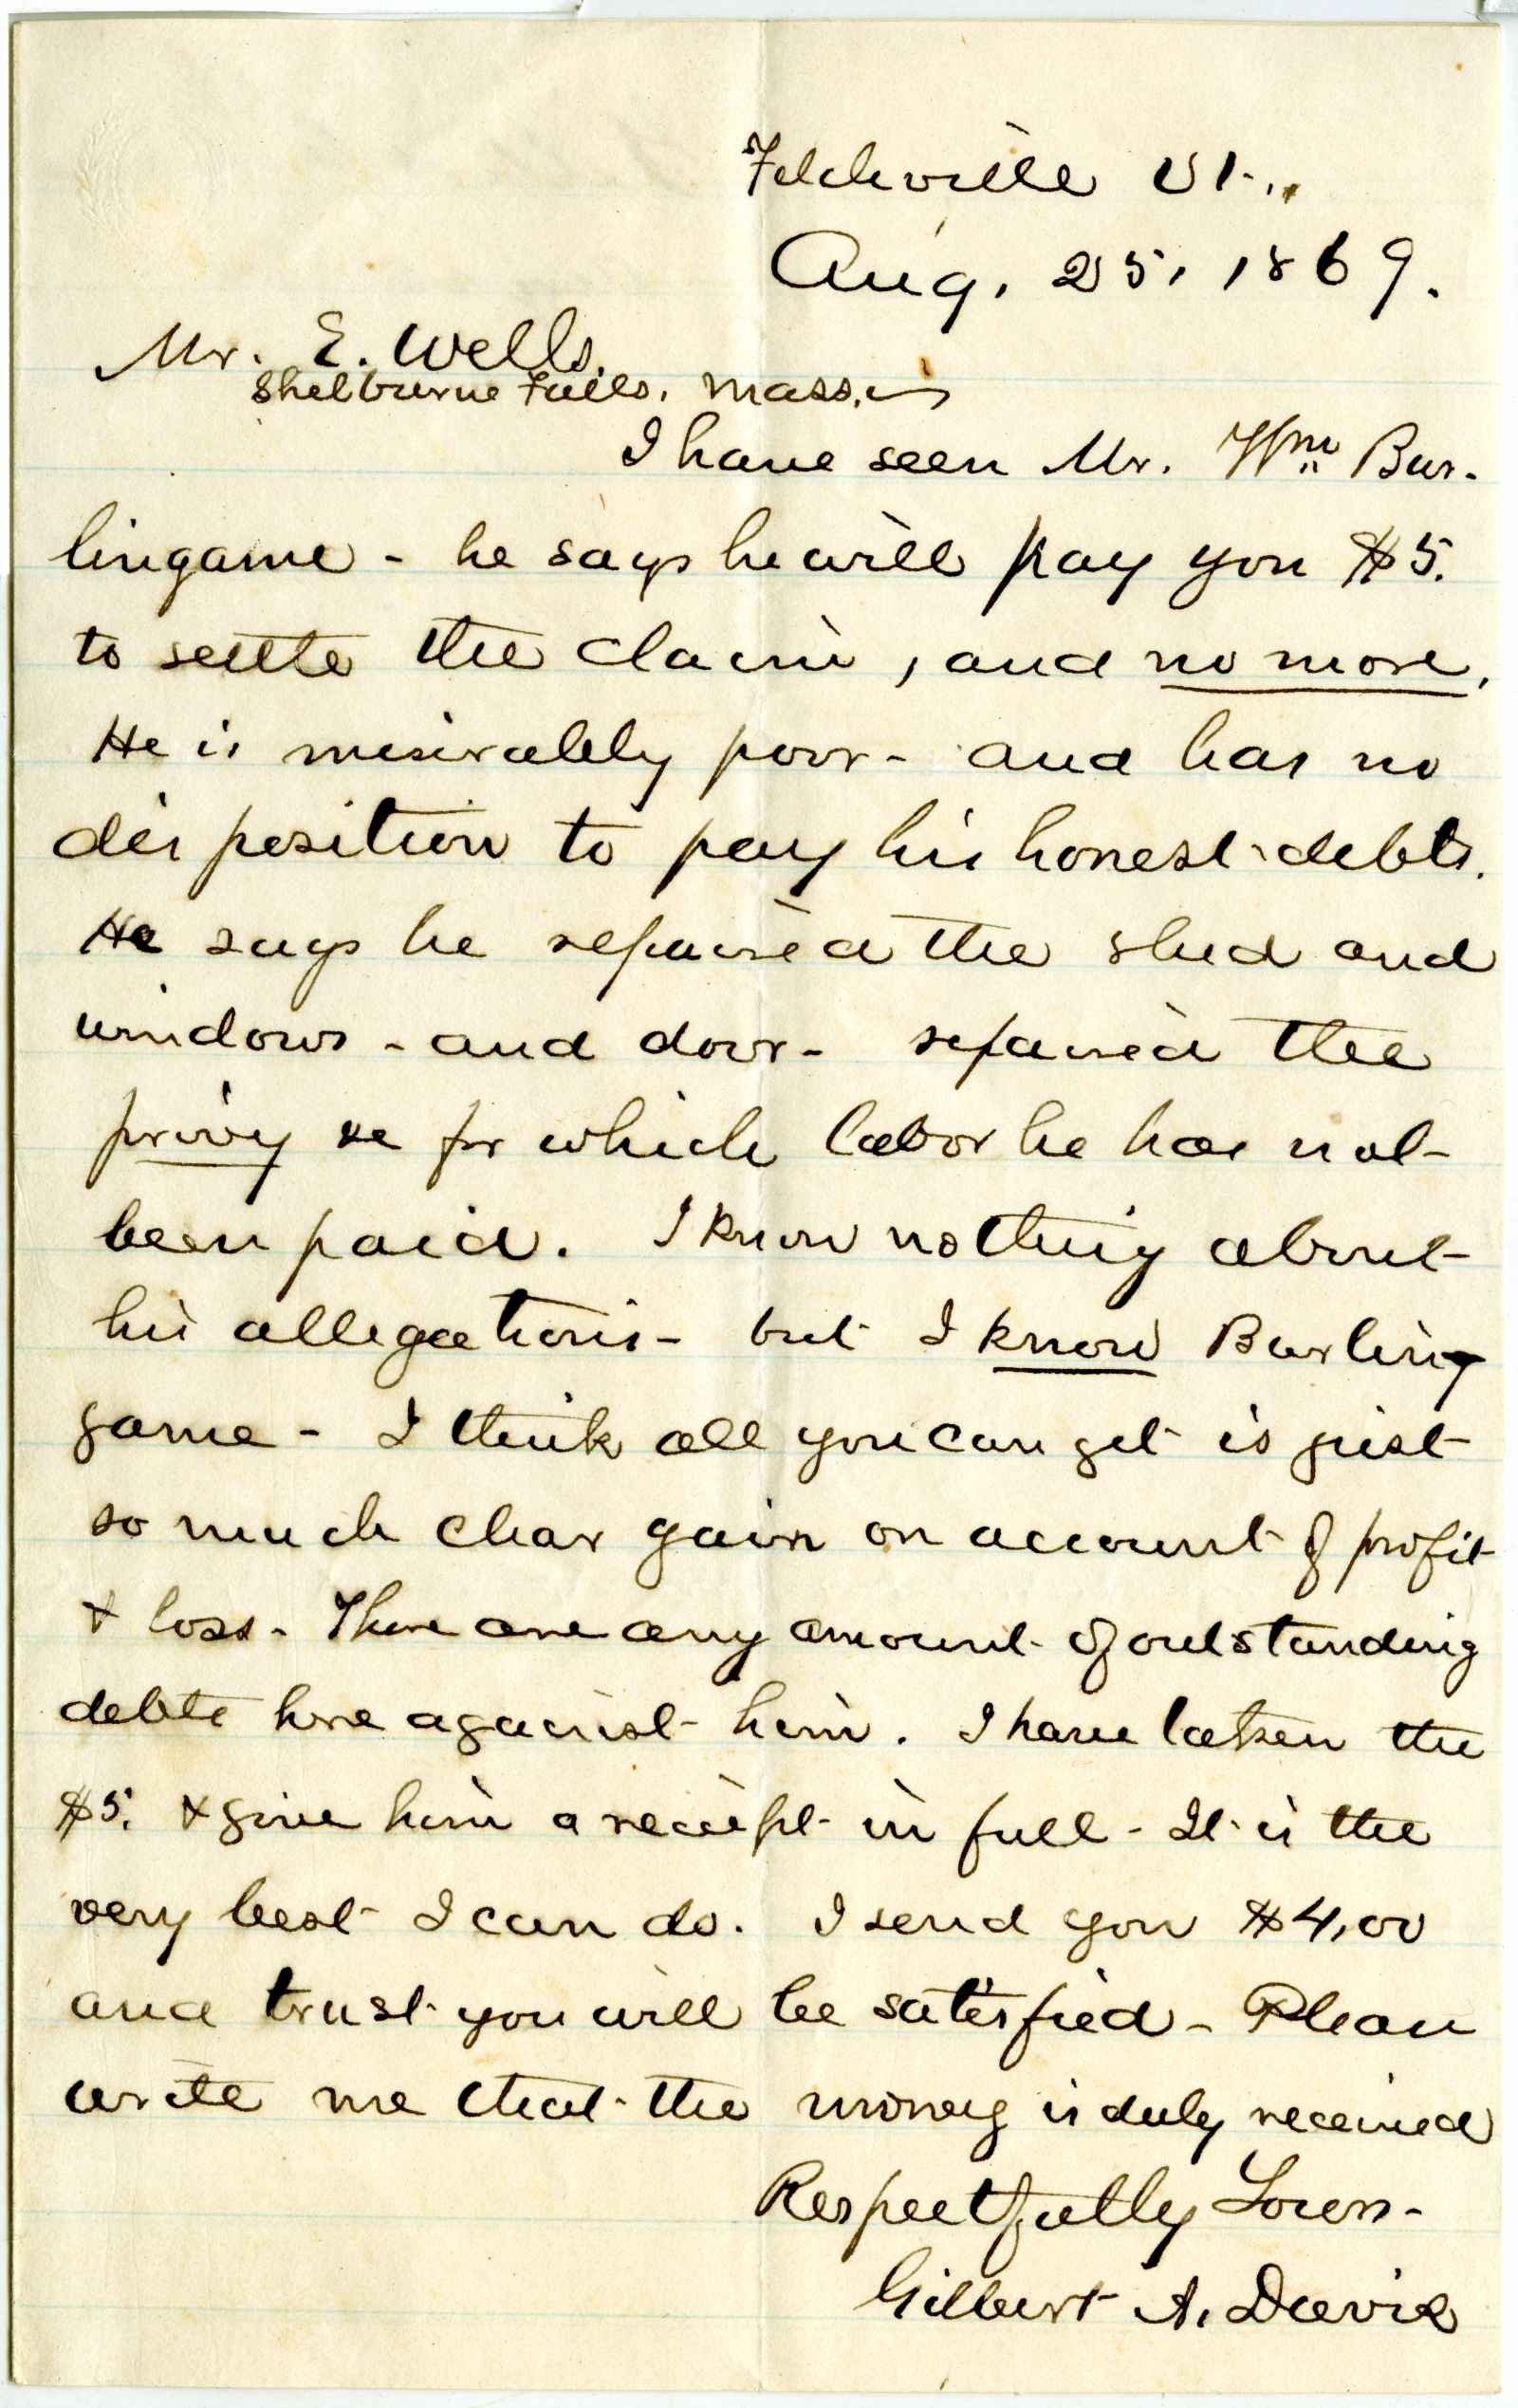 Felchville Vt.,
Aug. 25, 1869.
Mr. E. Wells,
Shelburne Falls, Mass.
I have seen Mr. Wm Bur-
lingame - he says he will pay you $5.
to settle the claim, and no more.
He is miserably poor - and has no
disposition to pay his honest debts.
He says he repaired the shed and
windows - and door - repaired the
privy &c for which labor he has not
been paid. I know nothing about
his allegations - but I know Burling
game - I think all you can get is just
so much clear gain on account of profit
& loss. There are any amount of outstanding
debts here against him. I have taken the
$5. & give him a receipt in full - It is the
very best I can do. I send you $4,00
and trust you will be satisfied - Please
write me that the money is duly received
Respectfully Yours -
Gilbert A. Davis